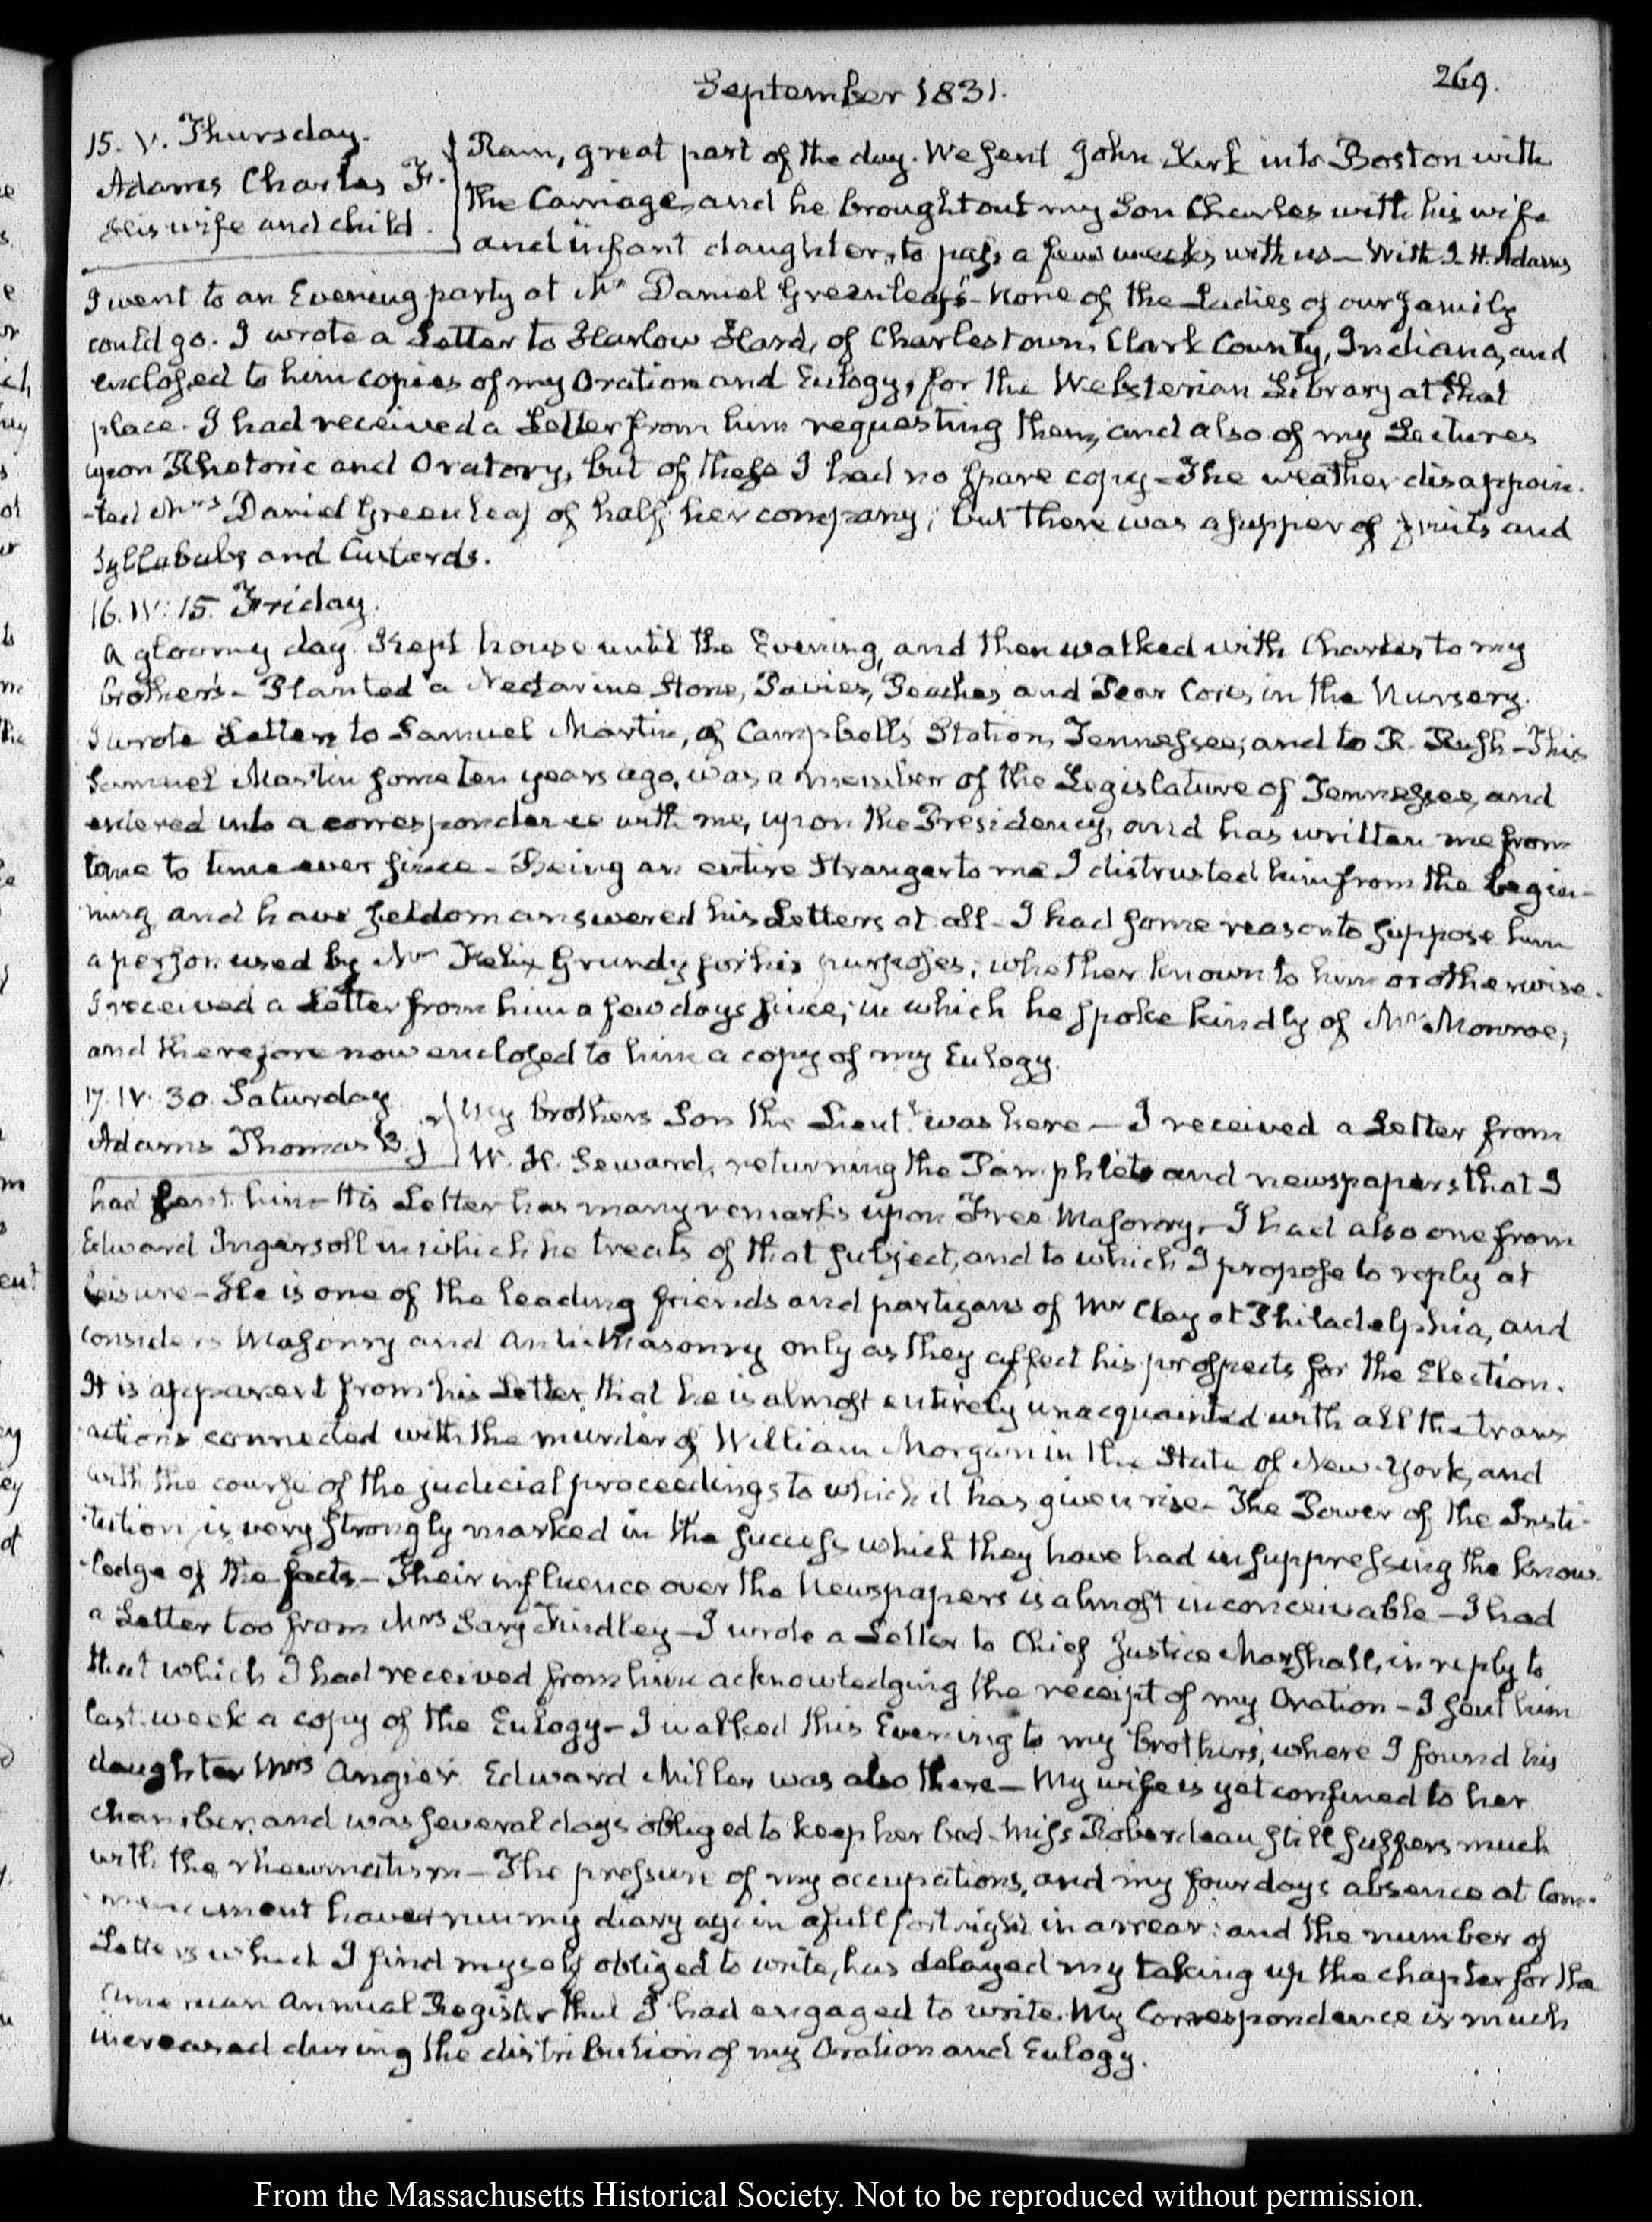 September 1831.
269.
15. V. Thursday.
Adams Charles F.
His wife and child.
Rain, great part of the day. We sent John Kirk into Boston with
the Carriage, and he brought out my Son Charles with his wife
and infant daughter, to pass a few weeks with us — With I. H. Adams
I went to an Evening party at Mr Daniel Greenleaf's — None of the Ladies of our family
could go. I wrote a Letter to Harlow Hard, of Charlestown, Clark County, Indiana, and
enclosed to him copies of my Oration and Eulogy, for the Websterian Library at that
place. I had received a Letter from him requesting them, and also of my Lectures
upon Rhetoric and Oratory, but of these I had no spare copy — The weather disappoin-
-ted Mrs Daniel Greenleaf of half her company; but there was a supper of fruits and
Syllabubs and Custards.
16. IV: 15. Friday.
A gloomy day. Kept house until the Evening, and then walked with Charles to my
brother's — Planted a Nectarine Stone, Pavies, Peaches and Pear Cores, in the Nursery.
I wrote Letters to Samuel Martin, of Campbells Station, Tennessee; and to R. Rush — This
Samuel Martin some ten years ago, was a member of the Legislature of Tennessee, and
entered into a correspondence with me, upon the Presidency, and has written me from
time to time ever since — Being an entire Stranger to me I distrusted him from the begin-
ning, and have seldom answered his Letters at all — I had some reason to suppose him
a person used by Mr Felix Grundy for his purposes; whether known to him or otherwise.
I received a Letter from him a few days since; in which he spoke kindly of Mr Monroe;
and therefore now enclosed to him a copy of my Eulogy.
17. IV. 30. Saturday
Adams Thomas B. j
My brothers Son the Lieutt was here — I received a Letter from
W. H. Seward, returning the Pamphlets and newspapers that I
had sent him — His Letter has many remarks upon Free Masonry. — I had also one from
Edward Ingersoll in which he treats of that subject, and to which I propose to reply at
leisure — He is one of the leading friends and partizans of Mr Clay at Philadelphia, and
considers Masonry and Anti-Masonry only as they affect his prospects for the Election.
It is apparent from his Letter that he is almost entirely unacquainted with all the trans
actions connected with the murder of William Morgan in the State of New-York, and
with the course of the judicial proceedings to which it has given rise — The Power of the Insti-
tution is very strongly marked in the success which they have had in suppressing the know-
-ledge of the facts — Their influence over the Newspapers is almost inconceivable — I had
a Letter too from Mrs Sarg Findley — I wrote a Letter to Chief Justice Marshall, in reply to
that which I had received from him acknowledging the receipt of my Oration — I sent him
last week a copy of the Eulogy — I walked this Evening to my brother's, where I found his
daughter Mrs Angier. Edward Miller was also there — My wife is yet confined to her
chamber, and was several days obliged to keep her bed. Miss Roberdeau still suffers much
with the rheumatism — The pressure of my occupations, and my four days absence at Com-
mencement have run my diary again a full fortnight in arrear: and the number of
Letters which I find myself obliged to write, has delayed my taking up the chapter for the
American Annual Register that I had engaged to write. My Correspondence is much
increased during the distribution of my Oration and Eulogy.
From the Massachusetts Historical Society. Not to be reproduced without permission.